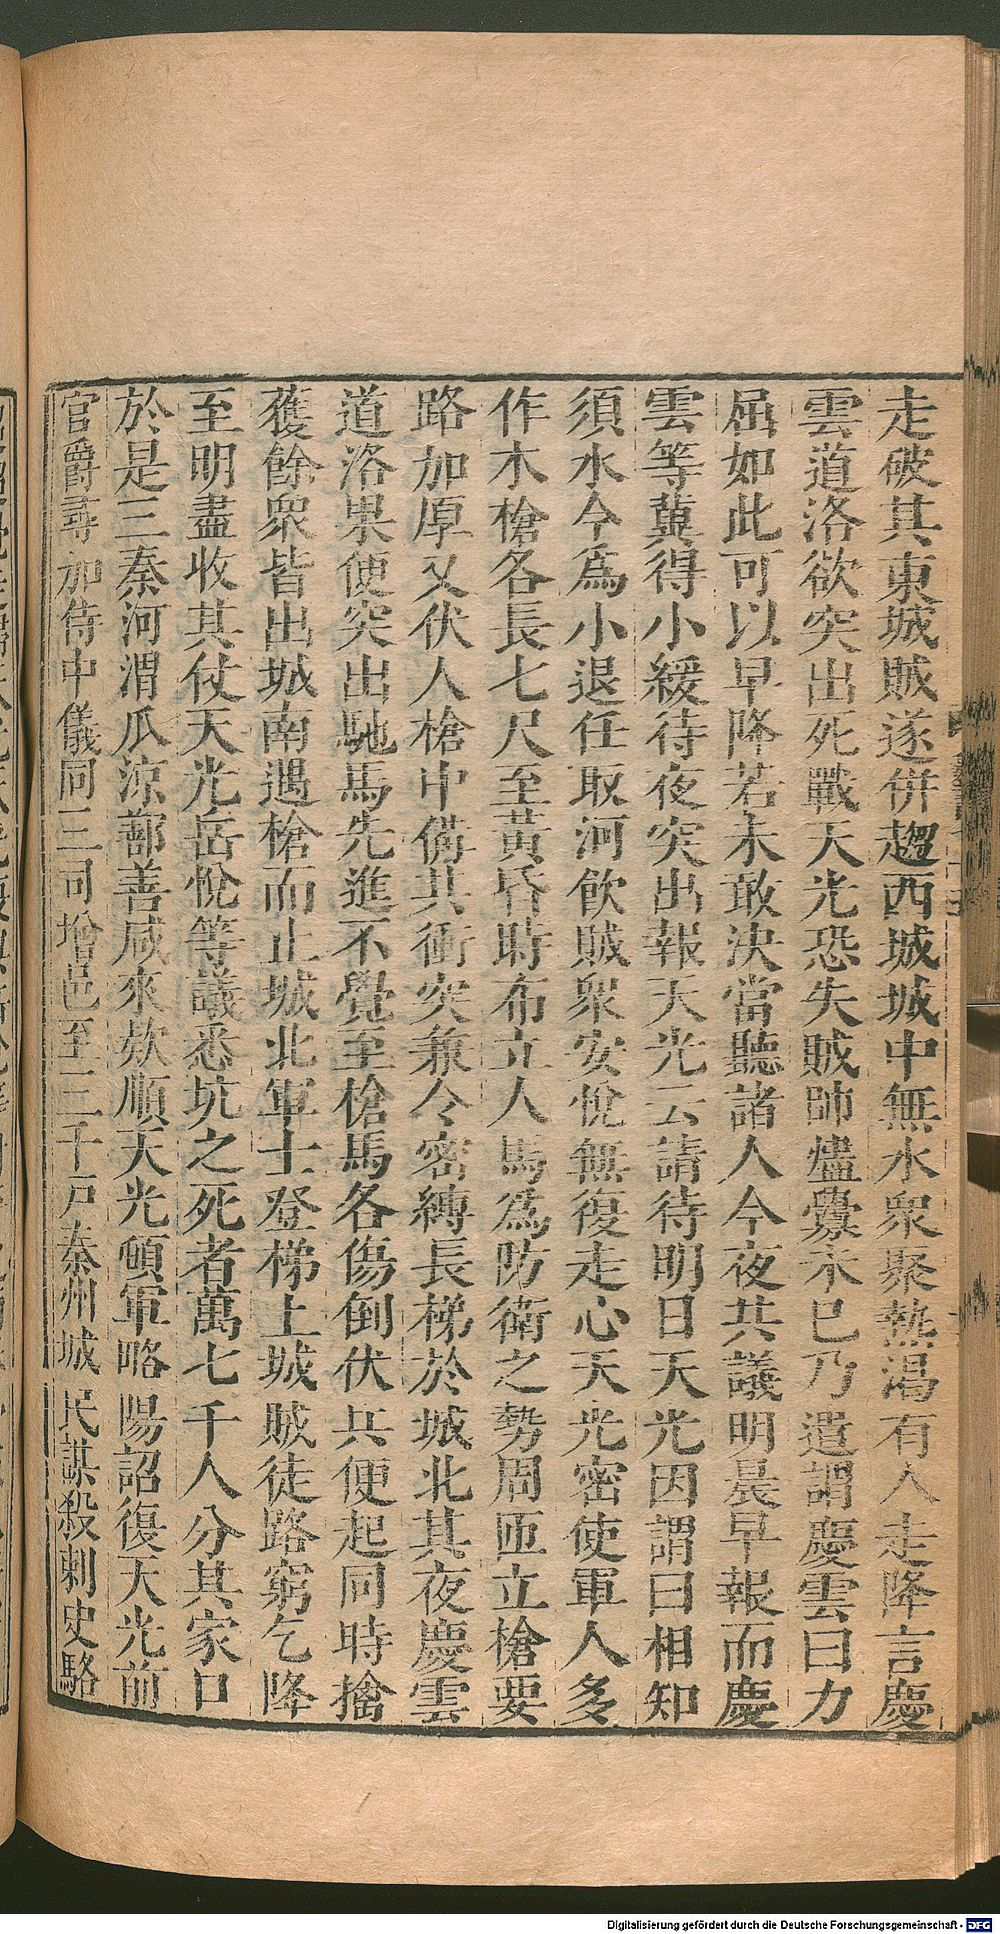 走破其東城賊遂併趨西城城中無水衆聚熱渴有人走降言慶
雲道洛欲突出死戰天光恐失賊帥燼釁未已乃遣謂慶雲曰力
屈如此可以早降若未敢決當聽諸人今夜共議明晨早報而慶
雲等冀得小緩待夜突出報天光云請待明日天光因謂曰相知
須水今爲小退任取河飲賊衆安悅無復走心天光密使軍人多
作木槍各長七尺至黃昏時布立人馬爲防衛之勢周匝立槍要
路加厚又伏人槍中備其衝突兼令密縛長梯於城北其夜慶雲
道洛果便突出馳馬先進不覺至槍馬各傷倒伏兵便起同時擒
獲餘衆皆出城南遇槍而止城北軍士登梯上城賊徒路窮乞降
至明盡收其仗天光岳悅等議悉坑之死者萬七千人分其家口
於是三秦河渭瓜涼鄯善咸來款順天光頓軍略陽詔復天光前
官爵尋加侍中儀同三司增邑至三千戶秦州城民謀殺刺史駱
Digitalisierung gefördert durch die Deutsche Forschungsgemeinschaft - DFG